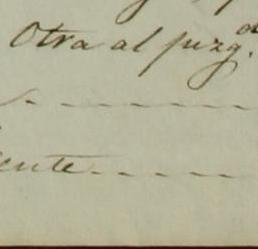 Otra al juzg.do
ente